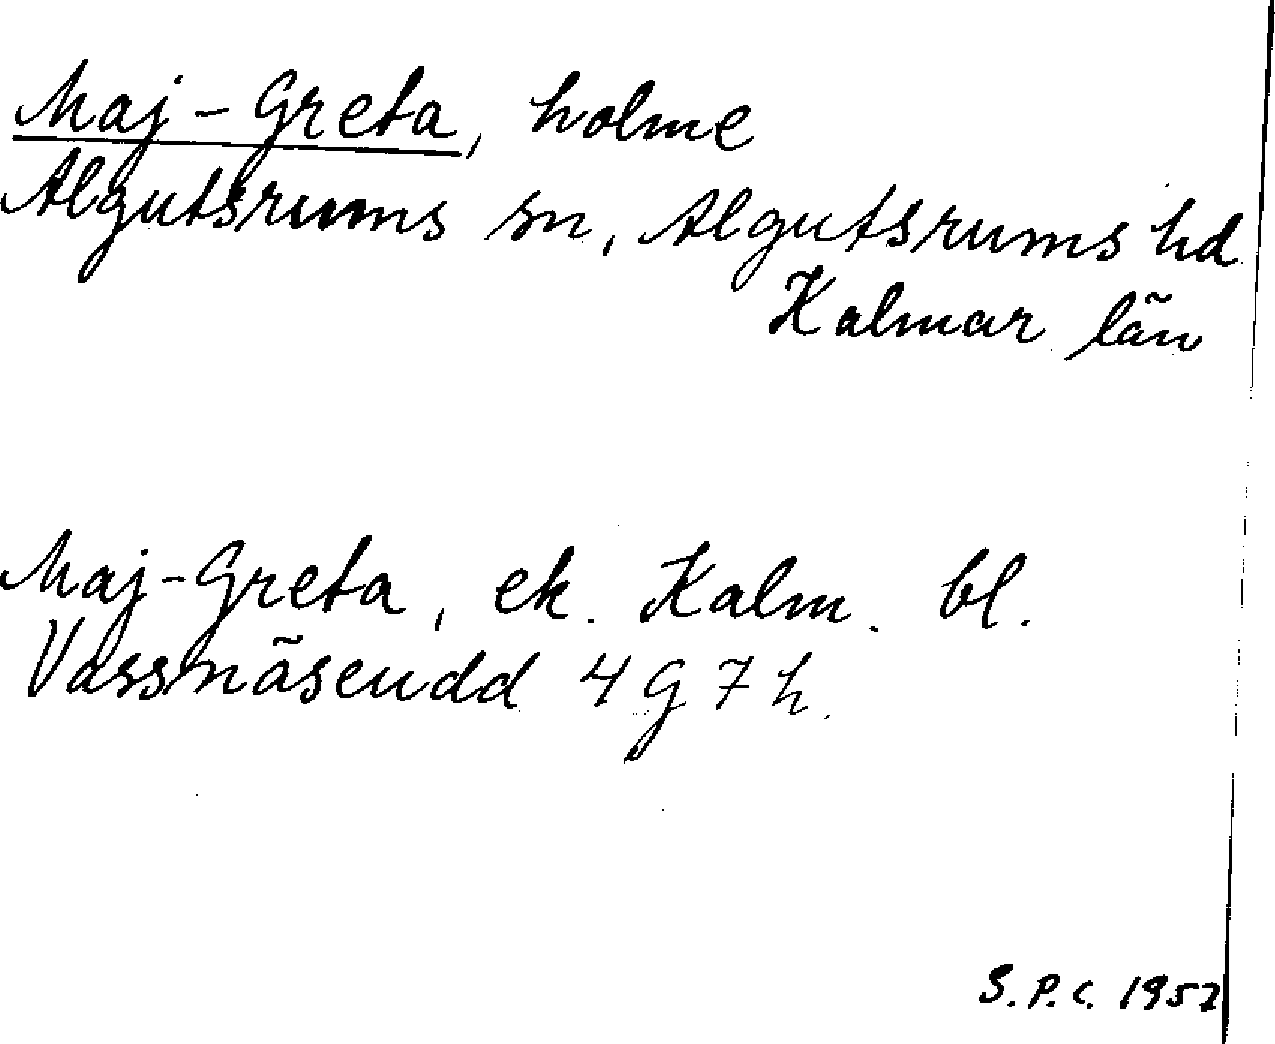 Maj-Greta, holme
Algutsrums sn, Algutsrums hd
Kalmar län
Maj-Greta, ek. Kalm. bl.
Vassnäsendd 4 G 7 h.
S.P.C. 1952